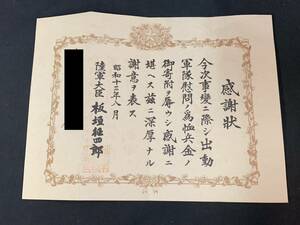 感謝狀
今次事變ニ際シ出動
軍隊慰問ノ為恤兵金ノ
御寄附ヲ辱ウシ感謝ニ
堪ヘス茲ニ深厚ナル
謝意ヲ表ス
昭和十三年八月
陸軍大臣 板垣征四郎